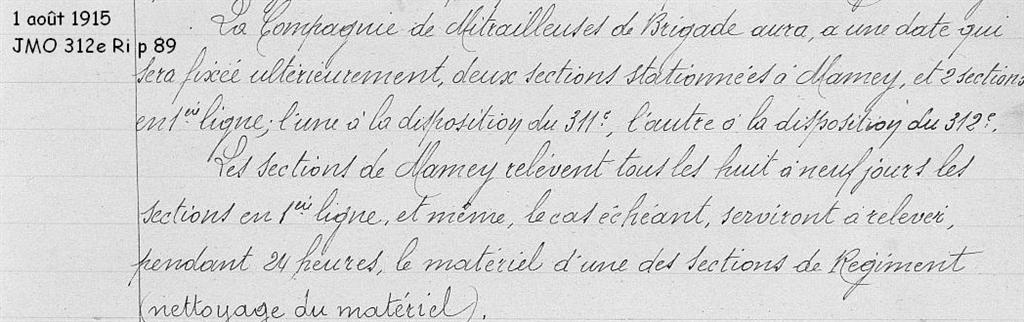 1 août 1915
JMO 312e Ri p 89
La Compagnie de Mitrailleuses de Brigade aura, a une date qui
sera fixée ultérieurement, deux sections stationnées à Mamey, et 2 sections
en 1ère ligne; l'une à la disposition du 311e, l'autre à la disposition du 312e.
Les sections de Mamey relèvent tous les huit à neuf jours les
sections en 1ère ligne, et même, le cas échéant, serviront à relever,
pendant 24 heures, le matériel d'une des sections de Régiment
(nettoyage du matériel).